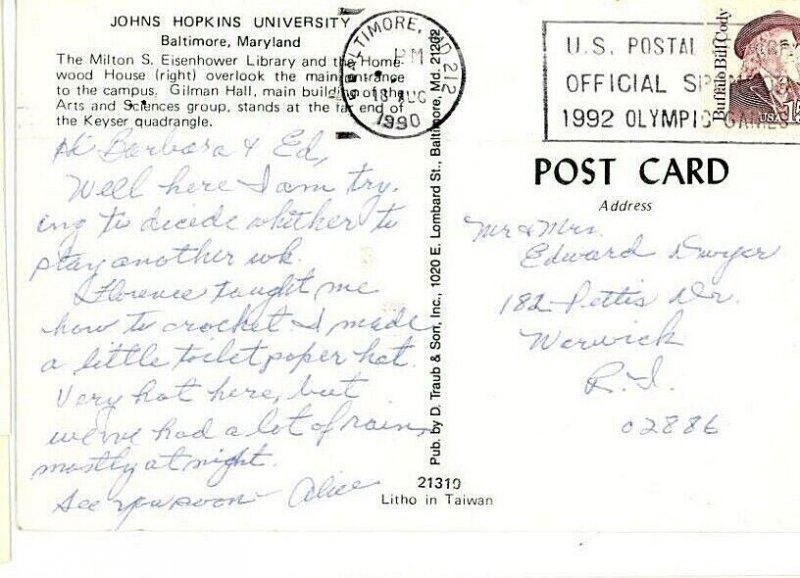 JOHNS HOPKINS UNIVERSITY
Baltimore, Maryland
The Milton S. Eisenhower Library and the Home-
wood House (right) overlook the main entrance
to the campus. Gilman Hall, main building of the
Arts and Sciences group, stands at the far end of
the Keyser quadrangle.
Hi Barbara & Ed,
Well here I am try-
ing to decide whither to
stay another wk.
Florence taught me
how to crochet I made
a little toilet paper hat.
Very hot here, but
we've had a lot of rain,
mostly at night.
See you soon - Alice
BALTIMORE, MD 212
PM
18 AUG
1990
U.S. POSTAL
OFFICIAL SPONSOR
1992 OLYMPIC GAMES
Buffalo Bill Cody
USA 15
Pub. by D. Traub & Son, Inc., 1020 E. Lombard St., Baltimore, Md. 21202
POST CARD
Address
Mr & Mrs.
Edward Dwyer
182 Pettis Dr.
Warwick
R.I.
02886
21310
Litho in Taiwan